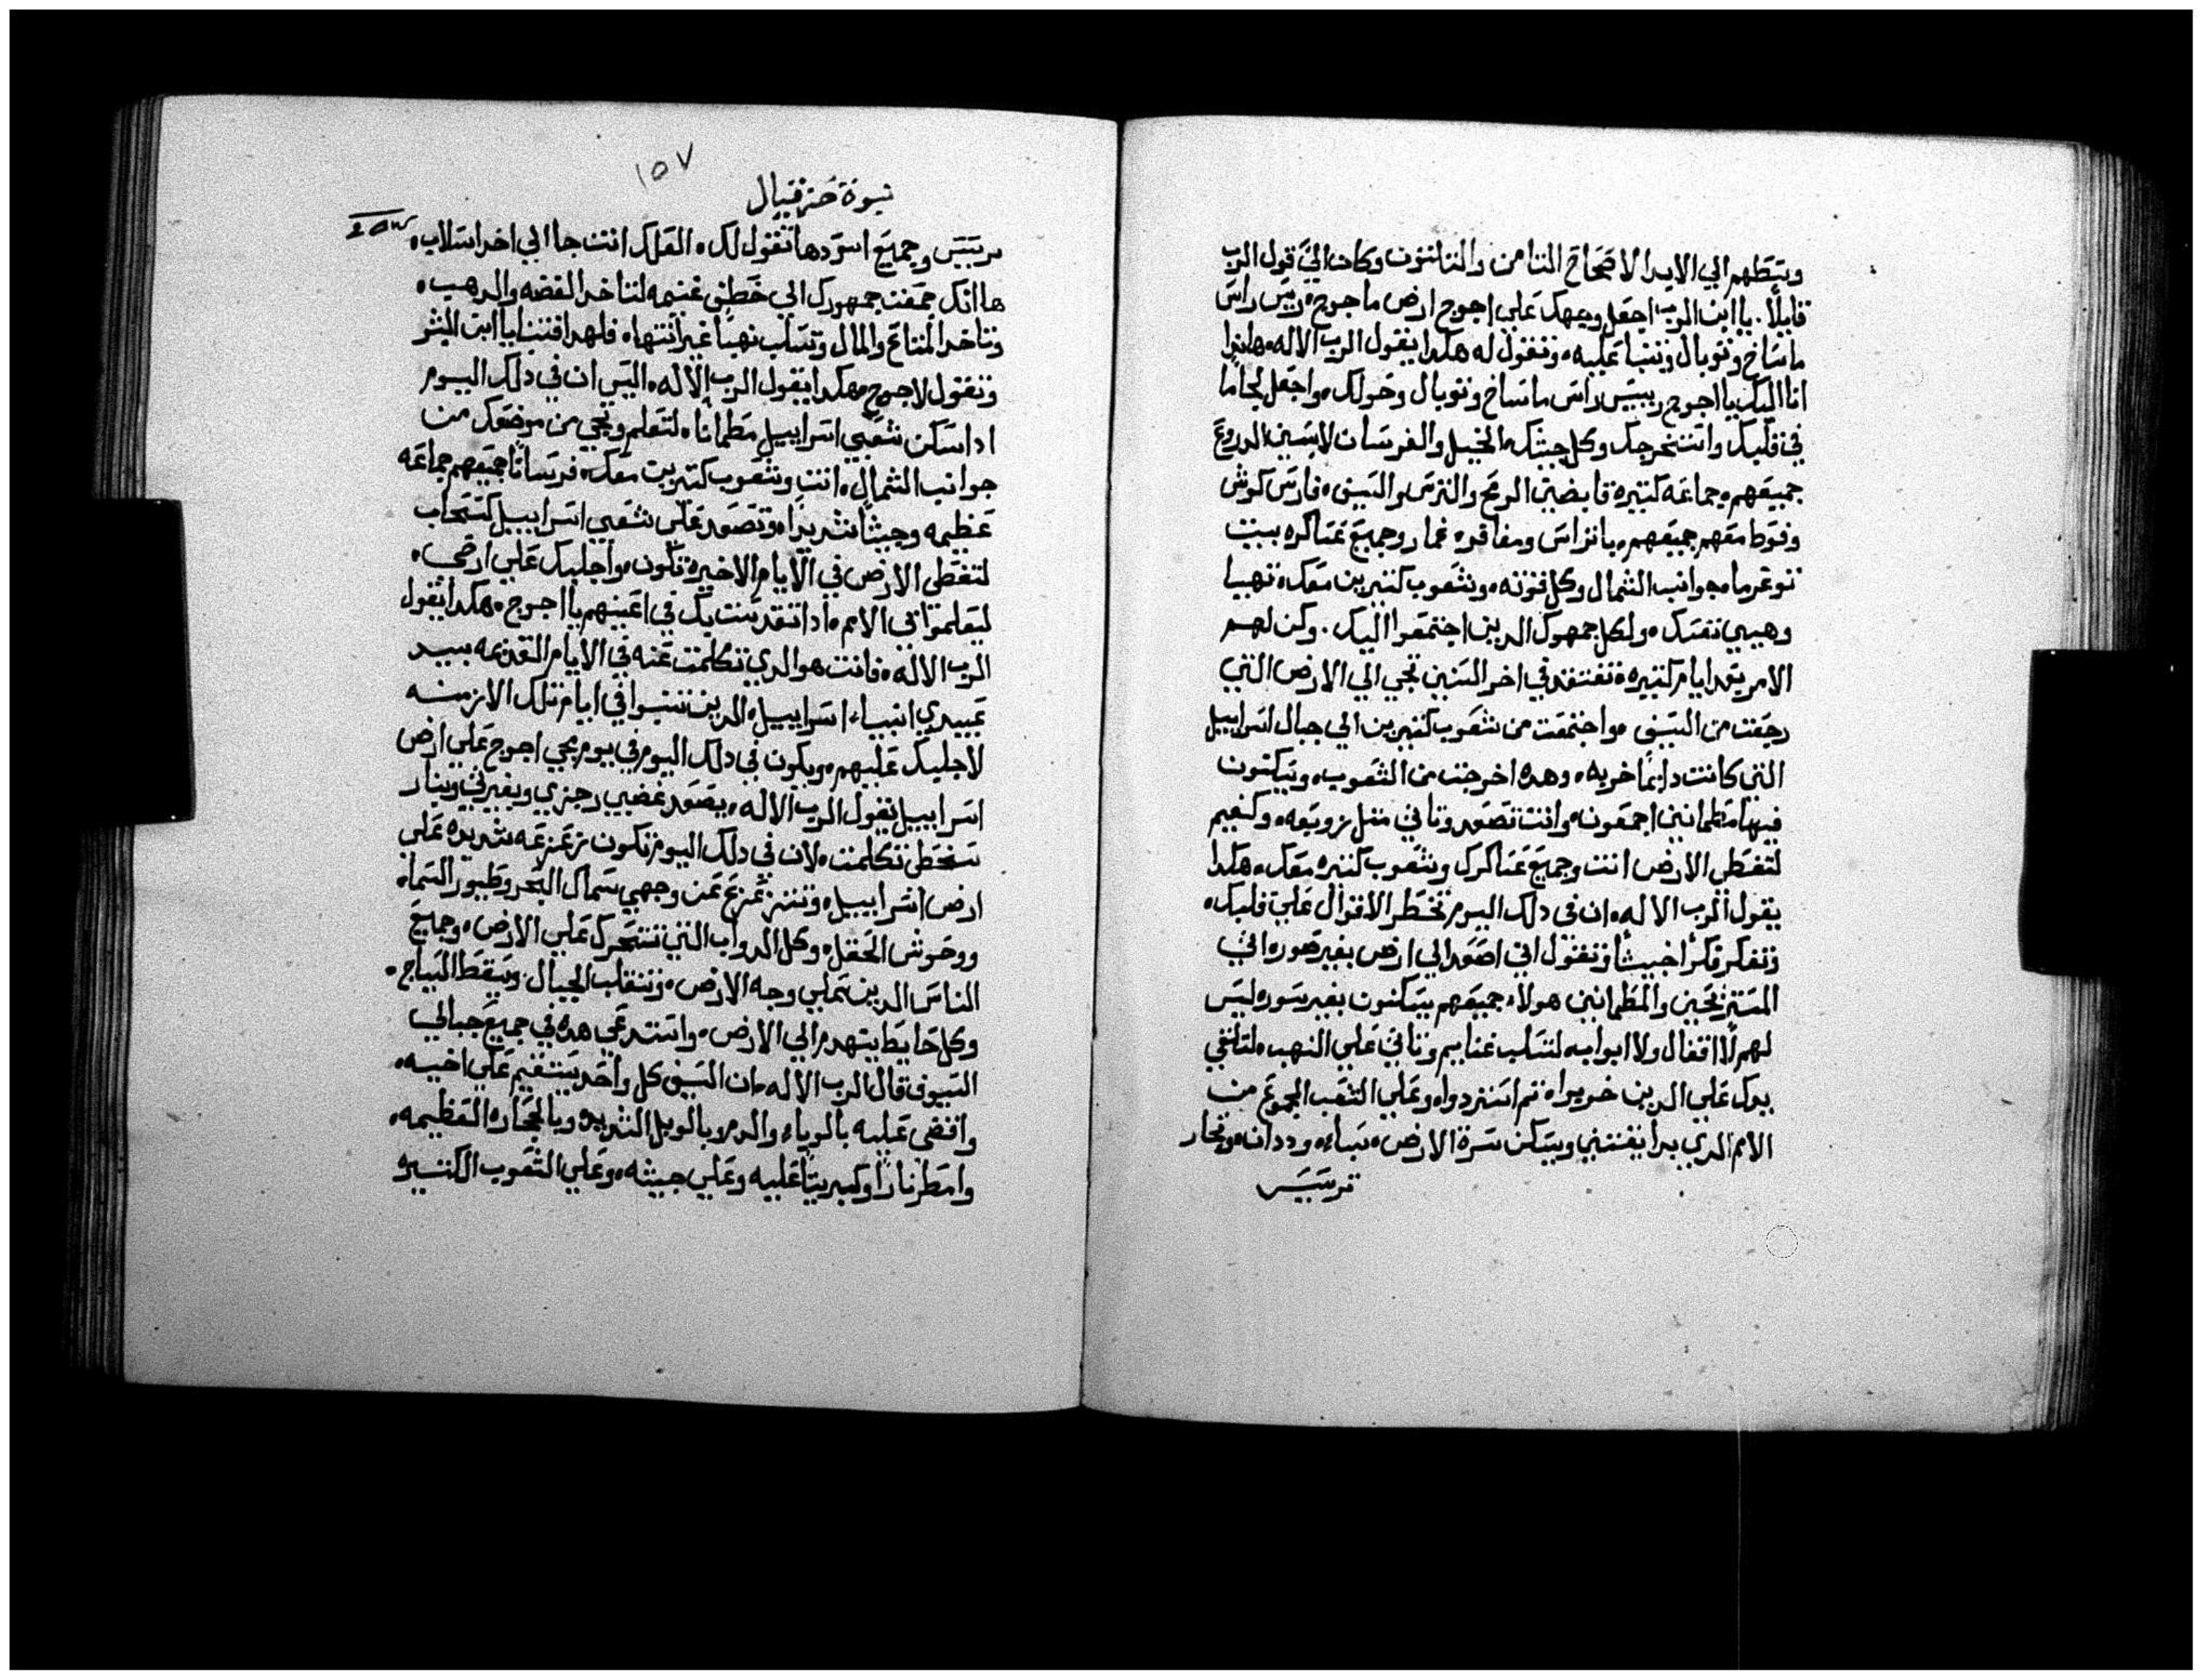 وسطهم الي الابد الاصحاح التامن والتلتون وكان اليّ قول الرب
قايلاً. يا ابن الرب اجعل وجهك علي اجوج ارض ماجوج، رييس راس
ماساخ وتوبال وتنبا عليه، وتقول له هكدا يقول الرب الاله، هاندا
انا اليك يا اجوج رييس راس ماساخ وتوبال وحولك، واجعل لجاما
في فكيك واستخرجك وكل جيشك، الخيل والفرسان لابسين الدروع
جميعهم، جماعه كتيره قابضين الرمح والترس والسيف، فارس كوش
وفوط معهم جميعهم، باتراس ومغافر، غمار وجميع عساكره بيت
توغرما، جوانب الشمال وكل قوته، وشعوب كتيرين معك، تهيا
وهيي نفسك، ولكل جمهوك الدين اجتمعوا اليك. وكن لهم
الامر بعد ايام كتيره، تفتقد في اخر السنين تجي الي الارض التي
رجعت من السيف، واجتمعت من شعوب كتيرين الي جبال اسراييل
التي كانت دايمًا خربه، وهده اخرجت من الشعوب، ويسكنون
فيها مطمانين اجمعون، وانت تصعد وتاتي متل زوبعه، وكغيم
لتغطي الارض انت وجميع عساكرك وشعوب كتيره معك، هكدا
يقول الرب الاله، ان في دلك اليوم تخطر الاقوال علي قلبك،
وتفكر فكرًا خبيثًا وتقول اني اصعد الي ارض بغير صوره اتي
المستريحين والمطمانين هولاء جميعهم يسكنون بغير سوره ليس
لهم لا اقفال ولا ابواب، لتسلب غنايم وتاتي علي النهب، لتلقي
يدك علي الدين خربوا، تم استردوا، وعلي الشعب المجموع من
الامم الدي بدا يقتني ويسكن سرة الارض، سباء، وددان، وتجار
ترسيس
١٥٧
نبوة حزقيال
ترسيس وجميع اسودها تقول لك، العلك انت جا الي اخد اسلاب،
ها انك جمعت جمهورك الي خطف غنيمه لتاخد الفضه والدهب،
وتاخد المتاع والمال وتسلب نهبًا غير انتها، فلهدا فتنبا يا ابن البشر
وتقول لاجوج، هكدا يقول الرب الاله، اليس ان في دلك اليوم
ادا سكن شعبي اسراييل مطمانا، لتعلم وتجي من موضعك من
جوانب الشمال، انت وشعوب كتيرين معك، فرسانًا جميعهم جماعه
عظيمه وجيشًا شديدًا، وتصعد علي شعبي اسراييل كسحاب
لتغطي الارض في الايام الاخيره تكون، واجلبك علي ارضي،
ليعلموا في الامم، ادا تقدست بك في اعينهم يا اجوج، هكدا يقول
الرب الاله، فانت هو الدي تكلمت عنه في الايام القديمه بيد
عبيدي انبياء اسراييل، الدين تنبوا في ايام تلك الازمنه
لاجلبك عليهم، ويكون في دلك اليوم في يوم يجي اجوج علي ارض
اسراييل يقول الرب الاله، يصعد غضبي رجزي وبغيرتي وبنار
سخطي تكلمت، لان في دلك اليوم تكون زعزعه شديده علي
ارض اسراييل، وتتزعزع عن وجهي سماك البحر وطيور السماء
ووحوش الحقل، وكل الدواب التي تتحرك علي الارض، وجميع
الناس الدين علي وجه الارض، وتنقلب الجبال وسقط السياج،
وكل حايط يتهدم الي الارض، واستدعي هده في جميع جبالي
السيوف قال الرب الاله، ان السيف كل واحد يستقيم علي اخيه،
واقضي عليه بالوباء والدم وبالوبل الشديد وبالحجاره العظيمه،
وامطر نارًا وكبريتًا عليه وعلي جيشه، وعلي الشعوب الكتيره